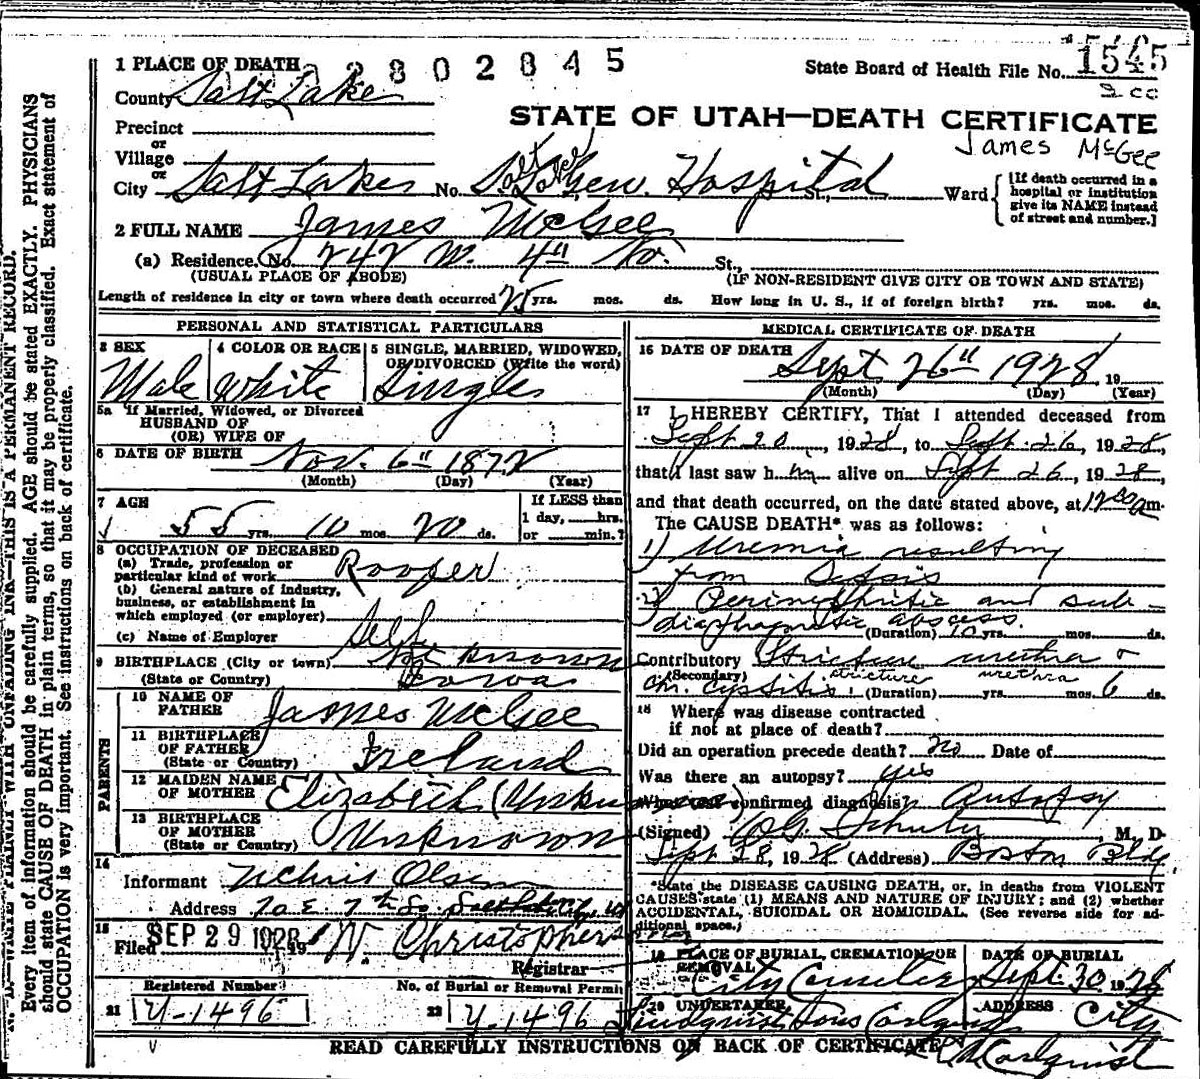 2802845
State Board of Health File No. 1545
STATE OF UTAH—DEATH CERTIFICATE
James McGee
1 PLACE OF DEATH
County Salt Lake
Precinct
or
Village
or
City Salt Lake No. Salt Lake Gen. Hospital St., Ward
[If death occurred in a hospital or institution give its NAME instead of street and number.]
2 FULL NAME James McGee
(a) Residence. No. 242 W. 4th No. St.,
(USUAL PLACE OF ABODE) (IF NON-RESIDENT GIVE CITY OR TOWN AND STATE)
Length of residence in city or town where death occurred 25 yrs. mos. ds. How long in U. S., if of foreign birth? yrs. mos. ds.
PERSONAL AND STATISTICAL PARTICULARS
3 SEX 4 COLOR OR RACE 5 SINGLE, MARRIED, WIDOWED, OR DIVORCED (Write the word)
Male White Single
5a If Married, Widowed, or Divorced
HUSBAND OF
(OR) WIFE OF
6 DATE OF BIRTH Nov. 6" 1872
(Month) (Day) (Year)
7 AGE 55 yrs. 10 mos. 20 ds.
If LESS than
1 day, hrs.
or min.?
8 OCCUPATION OF DECEASED
(a) Trade, profession or
particular kind of work Roofer
(b) General nature of industry,
business, or establishment in
which employed (or employer)
(c) Name of Employer Self
9 BIRTHPLACE (City or town) Not known
(State or Country) Iowa
PARENTS
10 NAME OF
FATHER James McGee
11 BIRTHPLACE
OF FATHER
(State or Country) Ireland
12 MAIDEN NAME
OF MOTHER Elizabeth (Unknown)
13 BIRTHPLACE
OF MOTHER
(State or Country) Unknown
14
Informant Olsen
Address 70 E. 7th So Salt Lake City, Ut
15
Filed SEP 29 1928 19 W. Christopherson
Registrar
Registered Number No. of Burial or Removal Permit
21 Y-1496 22 Y-1496
MEDICAL CERTIFICATE OF DEATH
16 DATE OF DEATH Sept 26" 1928 19
(Month) (Day) (Year)
17 I HEREBY CERTIFY, That I attended deceased from
Sept 20, 1928, to Sept. 26, 1928,
that I last saw him alive on Sept 26, 1928,
and that death occurred, on the date stated above, at 12 am.
The CAUSE DEATH* was as follows:
1) Uremia resulting
from Sepsis
2) Perinephritic and sub-
diaphragmatic abscess.
(Duration) 10 yrs. mos. ds.
Contributory Stricture urethra &
(Secondary) stricture urethra
chr. cystitis. (Duration) yrs. mos. 6 ds.
18 Where was disease contracted
if not at place of death?
Did an operation precede death? no Date of
Was there an autopsy? yes
What test confirmed diagnosis? Autopsy
(Signed) M. D.
Sept 28, 1928 (Address) Boston Bldg
*State the DISEASE CAUSING DEATH, or, in deaths from VIOLENT
CAUSES state (1) MEANS AND NATURE OF INJURY; and (2) whether
ACCIDENTAL, SUICIDAL OR HOMICIDAL. (See reverse side for ad-
ditional space.)
19 PLACE OF BURIAL, CREMATION OR REMOVAL DATE OF BURIAL
City Cemetery Sept. 30 1928
20 UNDERTAKER ADDRESS
Lindquist Sons Carlquist City
Carlquist
READ CAREFULLY INSTRUCTIONS ON BACK OF CERTIFICATE
WRITE PLAINLY WITH UNFADING INK—THIS IS A PERMANENT RECORD.
Every item of information should be carefully supplied. AGE should be stated EXACTLY. PHYSICIANS
should state CAUSE OF DEATH in plain terms, so that it may be properly classified. Exact statement of
OCCUPATION is very important. See instructions on back of certificate.